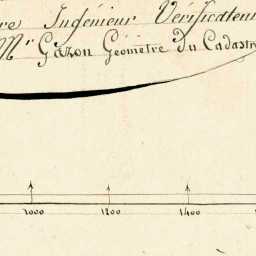 re Ingénieur Vérificateur
Mr Gazon Géomètre du Cadastre
1000 1200 1400